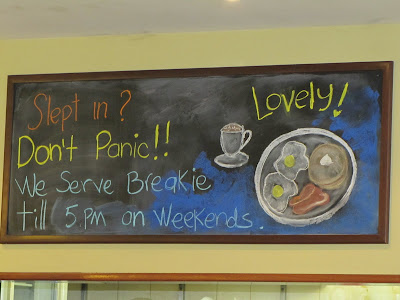 Slept in?
Don't Panic!!
We Serve Breakie
till 5.PM on Weekends.
Lovely!